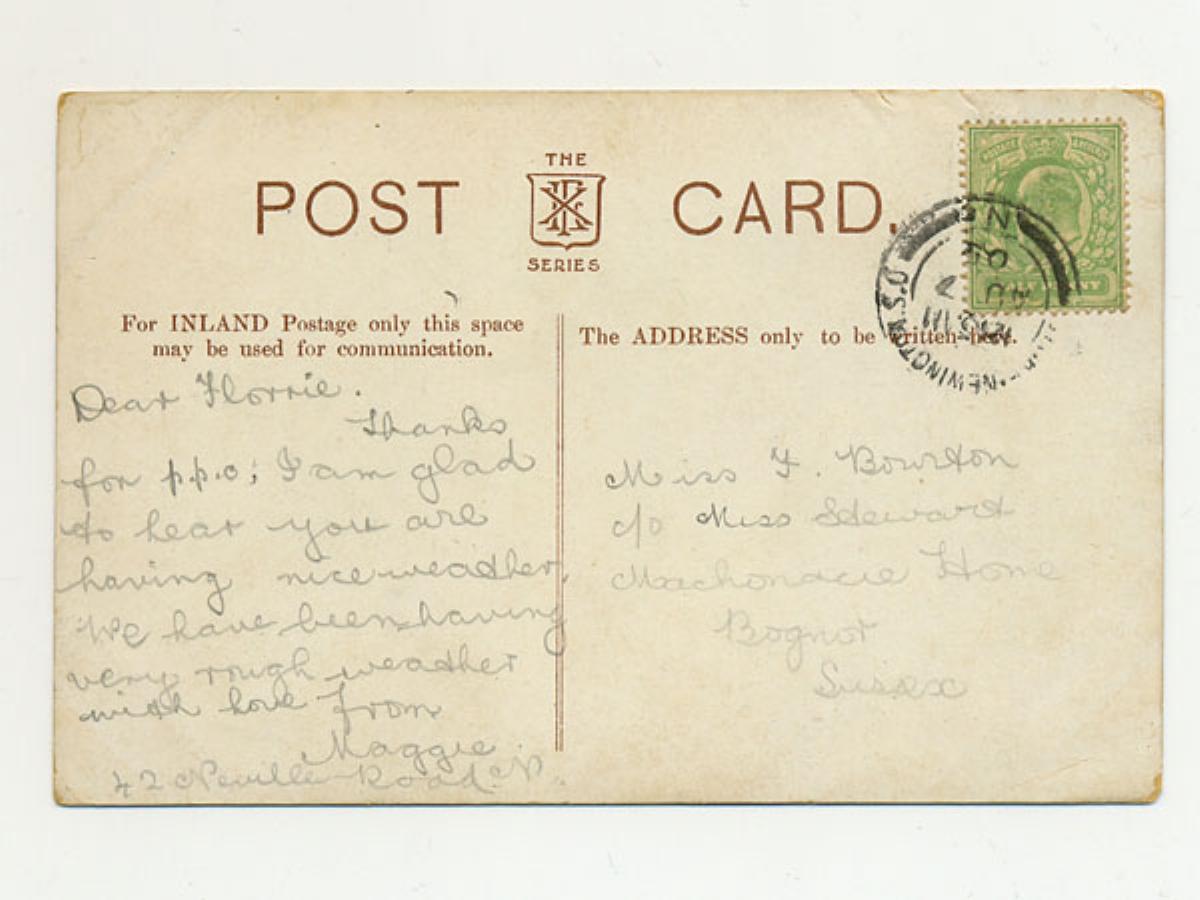 THE
POST CARD.
SERIES
For INLAND Postage only this space
may be used for communication.
The ADDRESS only to be written here.
Dear Florrie.
Thanks
for p.p.c; I am glad
to hear you are
having nice weather.
We have been having
very rough weather
with love from
Maggie.
42 Neville Road. N.
Miss F. Bourton
c/o Miss Steward
Home
Bognor
Sussex
NEWINGTON S.O